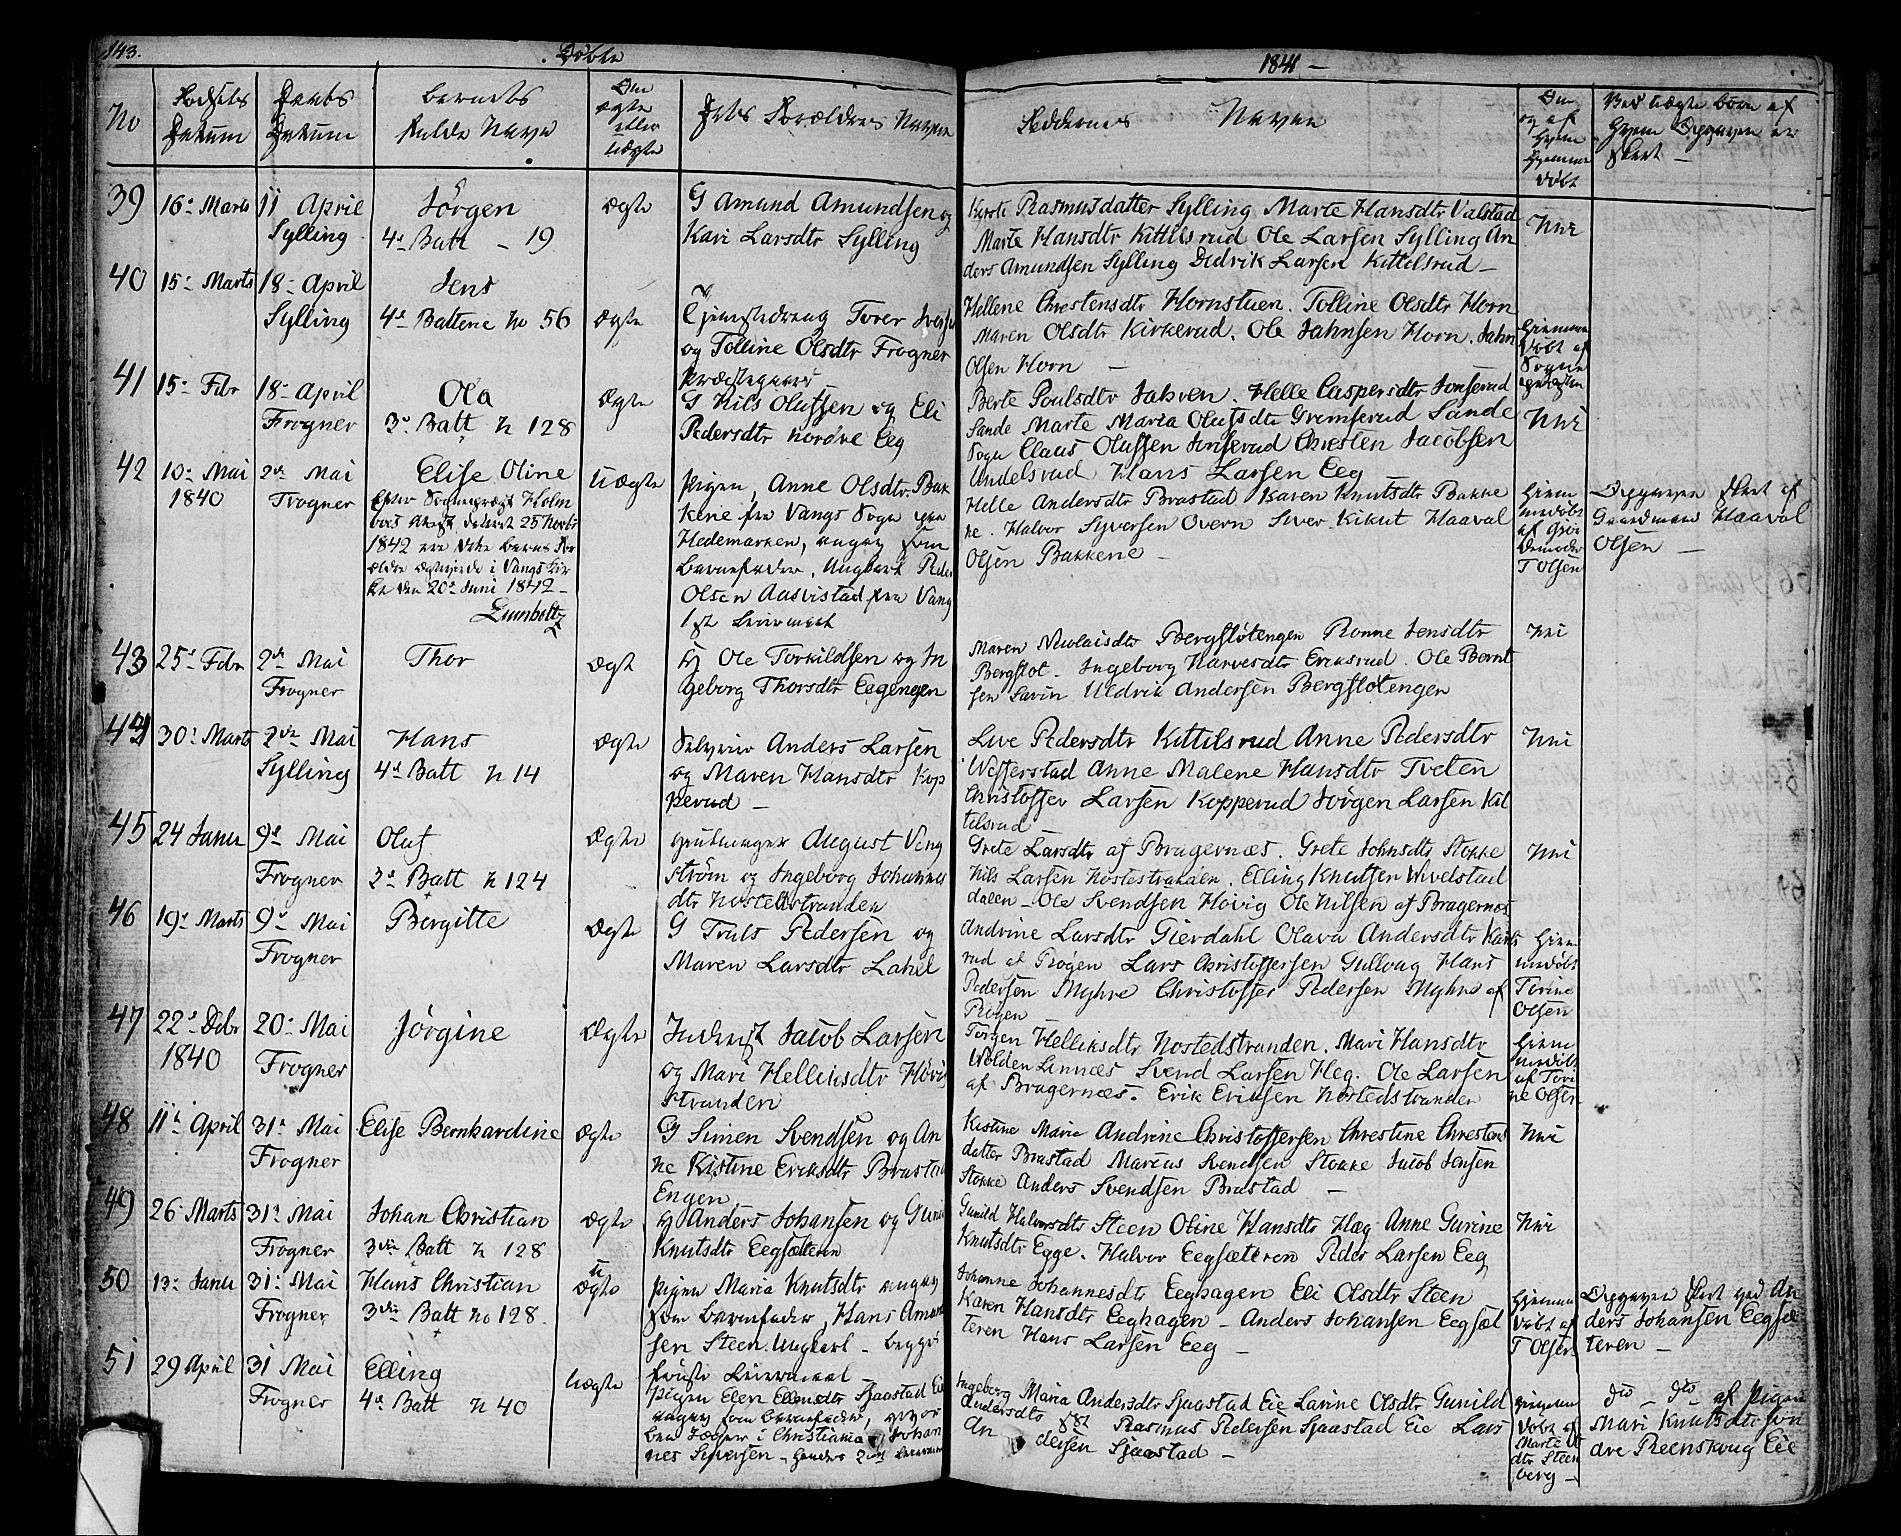 143.
Døbte
1841 –
No
Fødsels Datum
Daabs Datum
Barnets fulde Navn
Om ægte eller uægte
Dets Forældres Navne
Faddernes Navne
Om og af Hvem Hjemme døbt
Ved uægte børn af Hvem Opgaven er skeet –
39
16de Marts
11 April
Sylling
Jörgen
4de Batt – 19
Ægte
G Amund Amundsen og
Kari Larsdtr Sylling
Rasmusdatter Sylling Marte Hansdtr Valstad
Marte Hansdtr Kittilsrud Ole Larsen Sylling An
ders Amundsen Sylling Didrik Larsen Kittelsrud –
Nei
40
15de Marts
18de April
Sylling
Jens
4de Battene No 56
Ægte
Tjenestedreng Torer
og Tolline Olsdtr Frogner
Præstegaard
Hellene Chrestensdtr Hornstuen. Tolline Olsdtr Horn
Maren Olsdtr Kirkerud. Ole Jahnsen Horn. Jahn
Olsen Horn –
Hjemme
døbt af
Sogne
præsten
41
15de Fbr
18de April
Frogner
Ola
3de Batt N 128
Ægte
G Nils Olufsen og Eli
Pedersdtr nordre Eeg
Berte Poulsdtr Jahren. Helle Caspersdtr Jonsrud
Sande Marte Maria Olufsdtr Gremserud Sande
Sogn Claus Olufsen Jonserud Chresten Jacobsen
Undelsrud Hans Larsen Eeg –
Nei
42
10de Mai
1840
2den Mai
Frogner
Elise Oline
Efter Sognepræst Holm
boes Attest dateret 25 Novbr
1842 ere dette barns For
ældre ægteviede i Vangs Kir
ke den 20de Juni 1842 –
Lumholtz
Uægte
Pigen, Anne Olsdtr Bak
kene fra Vangs Sogn paa
Hedemarken, angav som
Barnefader, Ungkarl Peder
Olsen Aasvistad fra Vang
1ste Leiermaal
Helle Andersdtr Brastad Karen Knutsdtr Bakke
ne. Halvor Syversen Overn Siver Kikut Haaval
Olsen Bakkene –
Hjem
medøbt
af Jor
demoder
T Olsen
Opgaven skeet af
Gaardmand Haaval
Olsen –
43
25de Febr
2den Mai
Frogner
Thor
Ægte
Hj Ole Torkildsen og In
geborg Thorsdtr Eegengen
Maren Nicolaisdtr Bergflotengen Ronne Jensdtr
Bergflot. Ingeborg Narvesdtr Eriksrud. Ole Bernt
sen Lavin Uldrik Andersen Bergflotengen
Nei
44
30de Marts
2den Mai
Sylling
Hans
4de Batt N 14
Ægte
Selveier Anders Larsen
og Maren Hansdtr Kop
perud –
Live Pedersdtr Kittilsrud Anne Pedersdtr
Wefferstad Anne Malene Hansdtr Tveten
Christoffer Larsen Kopperud Jörgen Larsen Kit
tilsrud
Nei
45
24 Janu
9de Mai
Frogner
Oluf
3de Batt N 124
Ægte
August Veng
strøm og Ingeborg Johannes
dtr Nostedstranden
Grete Larsdtr af Bragernæs. Grete Johnsdtr Stokke
Nils Larsen Nostestranden. Elling Knutsen Wivelstad
dalen – Ole Svendsen Hövig Ole Nilsen af Bragernæs
Nei
46
19de Marts
9de Mai
Frogner
Bergitte
Ægte
G Truls Pedersen og
Maren Larsdtr Lahel
Andrine Larsdtr Gierdahl Olava Andersdtr
rud af Rögen Lars Christoffersen Gullaug Hans
Pedersen Myhre Christoffer Pedersen Myhre af
Rögen
Hjem
medøbt
Torine
Olsen
47
22de Dcbr
1840
20de Mai
Frogner
Jörgine
Ægte
Inderst Jacob Larsen
og Mari Helliksdtr Hövi
Stranden
Torgen Helliksdtr Nostedstranden. Mari Hansdtr
Wolden Linnæs Svend Larsen Heg. Ole Larsen
af Bragernæs. Erik Eriksen Nostedstranden
Hjem
medøbt
af Tori
ne Olsen
48
11te April
31te Mai
Frogner
Elise Bernhardine
Ægte
G Simen Svendsen og An
ne Kistine Eriksdtr Brastad
Engen
Kistine Marie Andrine Christoffersen Chrestine Chrestens
datter Brastad Marcus Svendsen Stokke Jacob Jensen
Stokke Anders Svendsen Brastad –
Nei
49
26 Marts
31te Mai
Frogner
Johan Christian
3die Batt N 128
Ægte
Hj Anders Johansen og Guni
Knutsdtr Eegsæteren
Gunild Halvorsdtr Steen Oline Hansdtr Hæg Anne Gurine
Knutsdtr Egge. Halvor Eegsæteren Peder Larsen Eeg
Nei
50
13de Janu
31te Mai
Frogner
Hans Christian
3die Batt No 128.
Uægte
Pigen Maria Knutsdtr angav
som Barnefader, Hans Amund
sen Steen Ungkarl – begges
første Leiermaal –
Johanne Johannesdtr Eeghagen Eli Olsdtr Steen
Karen Hansdtr Eeghagen – Anders Johansen Eegsæt
teren Hans Larsen Eeg –
Hjemme
døbt af
T Olsen
Opgaven skeet ved An
ders Johansen Eegsæ
teren –
51
29 April
31 Mai
Frogner
Elling
4de Batt N 40
Uægte
Pigen Elen Ellensdtr Sjaastad Eie
angav som Barnefader,
i Christiania Johan
nes Siversen – Hendes 2det
Ingeborg Maria Andersdtr Sjaastad Eie Larine Olsdtr Gunild
Andersdtr Rasmus Pedersen Sjaastad Eie Lars
An dersen Sjaastad –
Hjemme
døbt af
Marte
dtr Steen
berg –
do – do af Pigen
Mari Knutsdtr Søn
dre Reenskoug Eie